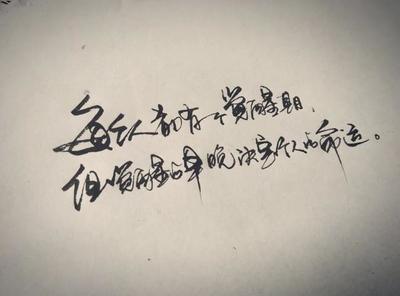 每个人都有个觉醒期，
但觉醒的早晚决定个人的命运。